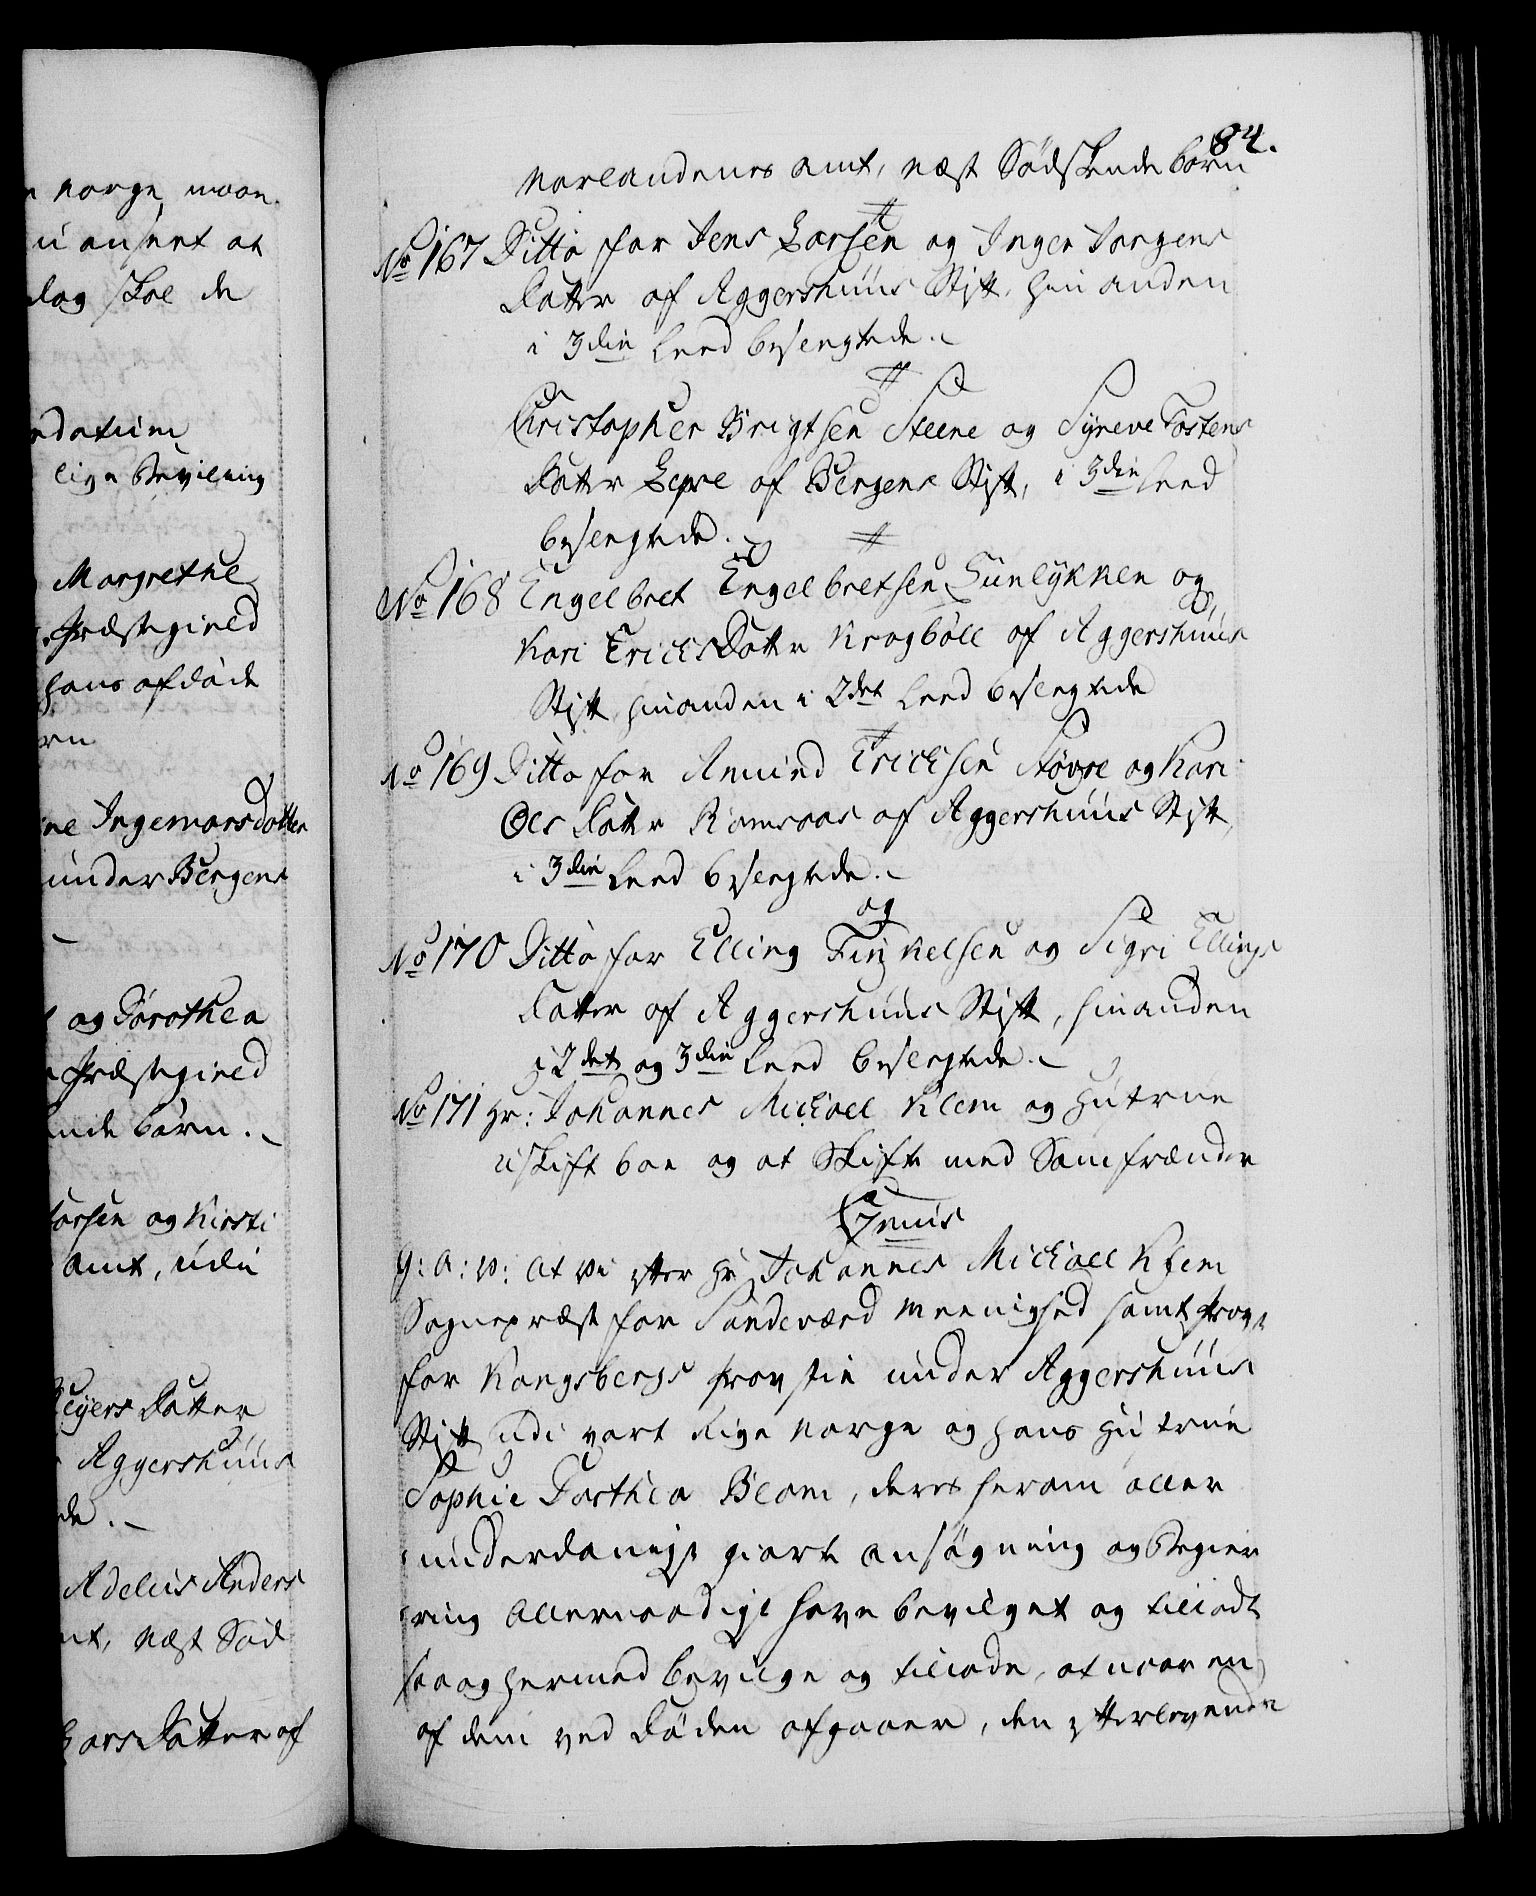 n Norge maae
u anseet at
lag skal de
ndatium
lige Bevilning
Margrethe
Præstegield
hans afdøde
rn
ne Ingemarsdatter
under Bergens
og Dorothea
Præstegield
ende børn.
larsen og Kirsti
Amt, udi
eyers Datter
Aggershuus
de.
Adelus Anders
mt, Næst Sød
Lars Datter af
84.
Norlandenes Amt, Næst Sødskende børn
#
No 167 Ditto for Jens Larsen og Inger Jorgens
Datter af Aggershuus Stift, hin anden
i 3die Leed besvogrede.
#
Christopher Brigtsen Steene og Syneve Tostens
Datter Lepse af Bergens Stift, i 3die Leed
beslegtede.
#
No 168 Engelbret Engelbretsen Lunlykken og
Kari Erichs Datter Krogbøll af Aggershuus
Stift hinanden i 2det Leed beslegtede
#
No 169 Ditto for Amund Erichsen Støvre og Kari
Oles Datter Ramsaas af Aggershuus Stift,
i 3die Leed beslegtede.
og
No 170 Ditto for Elling Finkelsen og Sigri Ellings
Datter af Aggershuus Stift, hinanden
i 2det og 3die Leed beslegtede.
No 171 Hr: Johannes Michael Klem og Hustrue
uskift boe og at Skifte med Samfrænder
Genuis
G: A: V: At Vi efter Hr Johannes Michael Klem
Sognepræst for Sandeværd Meenighed samt Provst
for Kongsbergs Provstie under Aggershuus
Stift udi vort Rige Norge og hans Hustrue
Sophie Dorthea Blom, deres herom aller
underdanigst giorte Ansøgning og Begier
ring Allernaadigst have bevilget og tilladt
saa og hermed bevilge og tillade, at naar en
af dem ved Døden afgaaer, den efterlevende